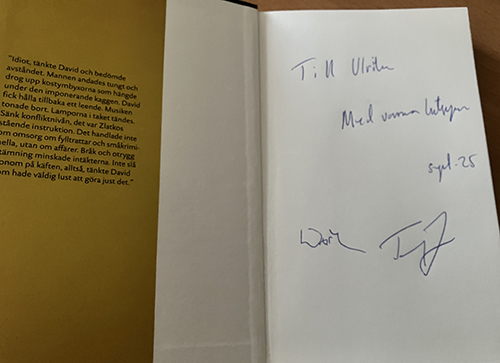 "Idiot, tänkte David och bedömde
avståndet. Mannen andades tungt och
drog upp kostymbyxorna som hängde
under den imponerande kaggen. David
fick hålla tillbaka ett leende. Musiken
tonade bort. Lamporna i taket tändes.
Sänk konfliktnivån, det var Zlatkos
stående instruktion. Det handlade inte
om omsorg om fylltrattar och småkrimi-
ella, utan om affärer. Bråk och otrygg
tämning minskade intäkterna. Inte slå
onom på käften, alltså, tänkte David
om hade väldig lust att göra just det."
Till
Med varma
sept. 25